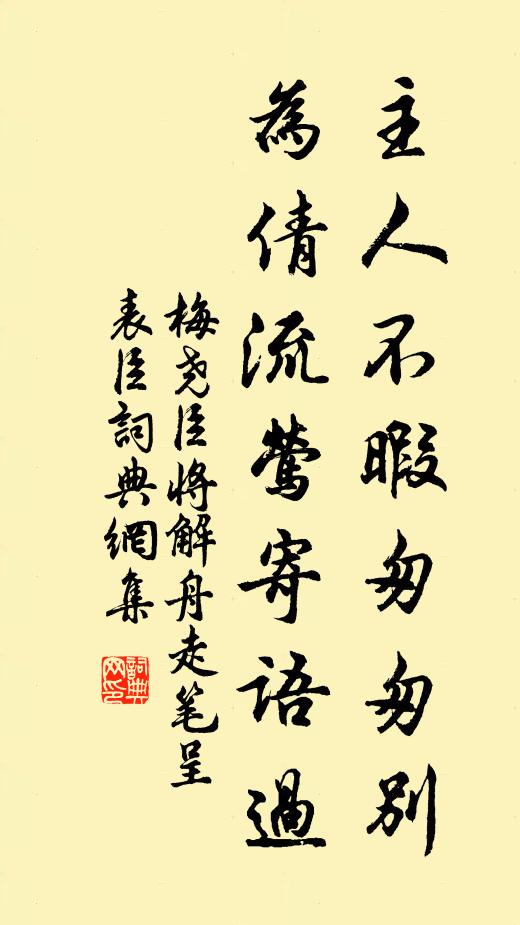 主人不暇匆匆別
為倩流鶯寄語過
梅尧臣將解舟走笔呈
表臣詞典網集
詞典网印